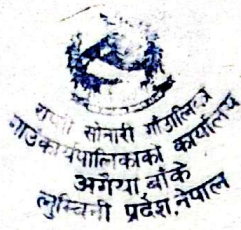 राप्ती सोनारी गाँउपालिका
गाउँकार्यपालिकाको कार्यालय
अगैया बाँके
लुम्बिनी प्रदेश, नेपाल